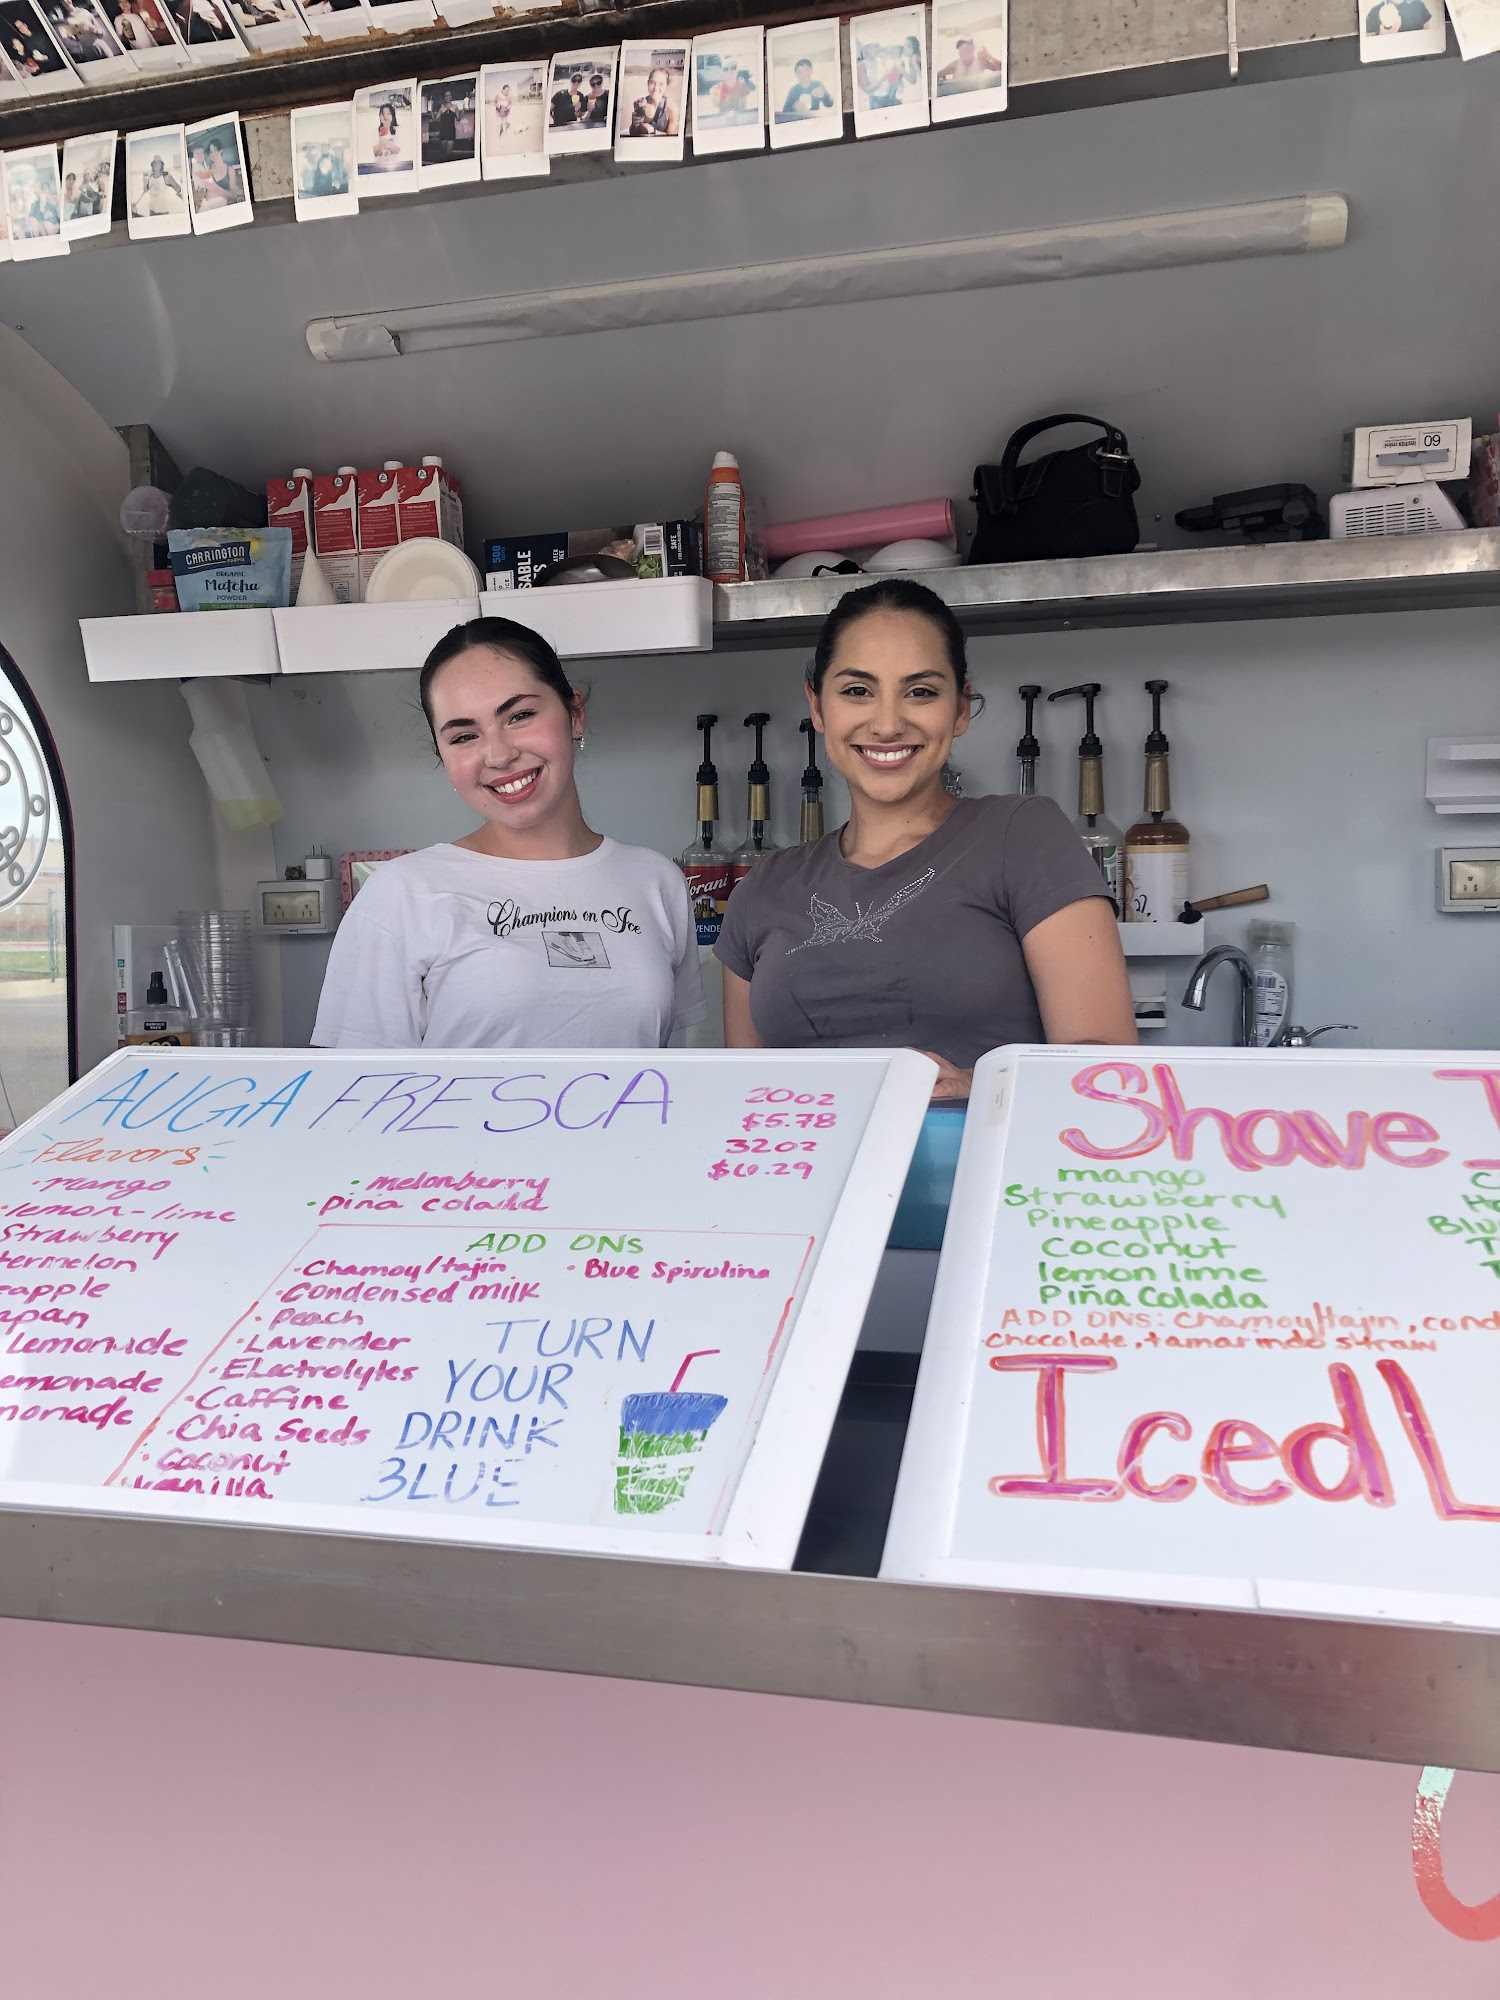 60
instax mini
CARRINGTON
FARMS
ORGANIC
Matcha
POWDER
500
SABLE
SAFE
Torani
Champions on Ice
AUGA FRESCA
20oz
$5.78
32oz
$6.29
Flavors
• mango
• lemon-lime
Strawberry
termelon
eapple
apan
Lemonade
emonade
monade
• melonberry
• piña colada
ADD ONs
• Chamoy/tajin
• Condensed milk
• Peach
• Lavender
• ELectrolytes
• Caffine
• Chia Seeds
• Coconut
• Vanilla
• Blue Spirulina
TURN
YOUR
DRINK
BLUE
Shave I
mango
Strawberry
Pineapple
Coconut
lemon lime
Piña Colada
C
Blu
ADD ONS: Chamoy/tajin, cond
chocolate, tamarindo straw
Iced L